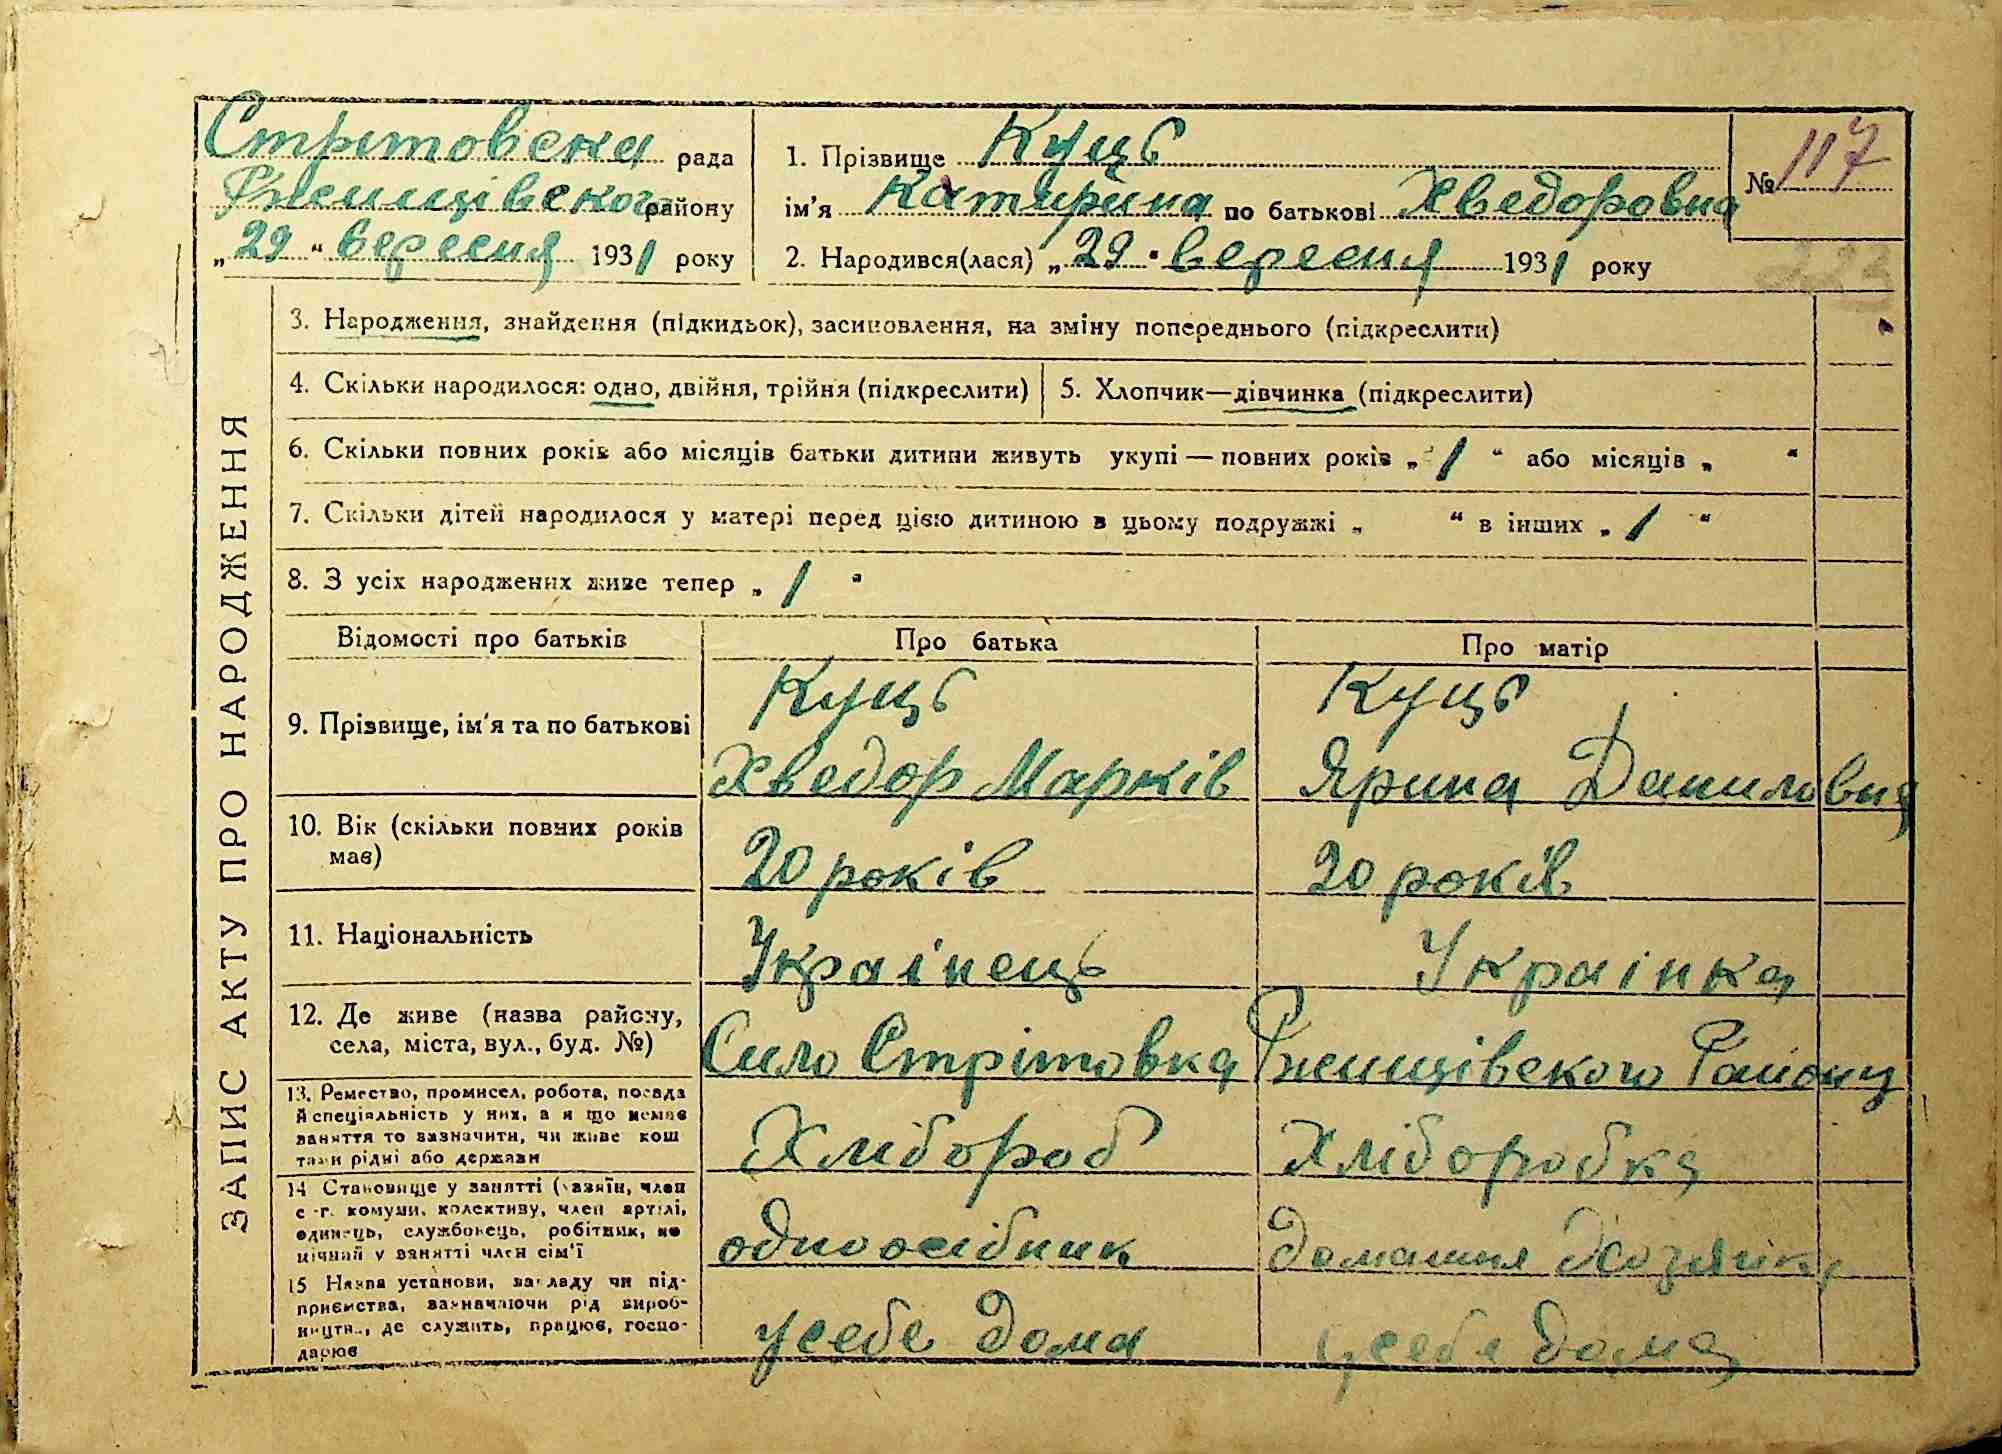 ЗАПИС АКТУ ПРО НАРОДЖЕННЯ
Стрітовска рада
Ржищівского району
„29“ вересня 1931 року
1. Прізвище Куць
ім'я Катирина по батькові Хведоровна
2. Народився(лася) „29" вересня 1931 року
№ 117
223
3. Народження, знайдення (підкидьок), засиновлення, на зміну попереднього (підкреслити)
4. Скільки народилося: одно, двійня, трійня (підкреслити)
5. Хлопчик—дівчинка (підкреслити)
6. Скільки повних років або місяців батьки дитини живуть укупі — повних років „1“ або місяців „ “
7. Скільки дітей народилося у матері перед цією дитиною в цьому подружжі „ “ в інших „1“
8. З усіх народжених живе тепер „1"
Відомості про батьків
Про батька
Про матір
9. Прізвище, ім'я та по батькові
Куць
Хведор Марків
Куць
Ярина Даниловна
10. Вік (скільки повних років
має)
20 років
20 років
11. Національність
Українець
Українка
12. Де живе (назва району,
села, міста, вул., буд. №)
Сило Стрітовка Ржищівского Району
13. Ремество, промисел, робота, посада
й спеціяльність у них, а я що немає
заняття то зазначити, чи живе кош
тами рідні або держави
Хлібороб
Хліборобка
14 Становище у занятті (хазяїн, член
с -г. комуни, колективу, член артілі,
одинець, службовець, робітник, по
мічний у занятті член сім'ї
одноосібник
домашня Хозяйка
15 Назва установи, закладу чи під-
приємства, зазначаючи рід вироб-
ництва, де служить, працює, госпо-
дарює
усебе дома
усебе дома